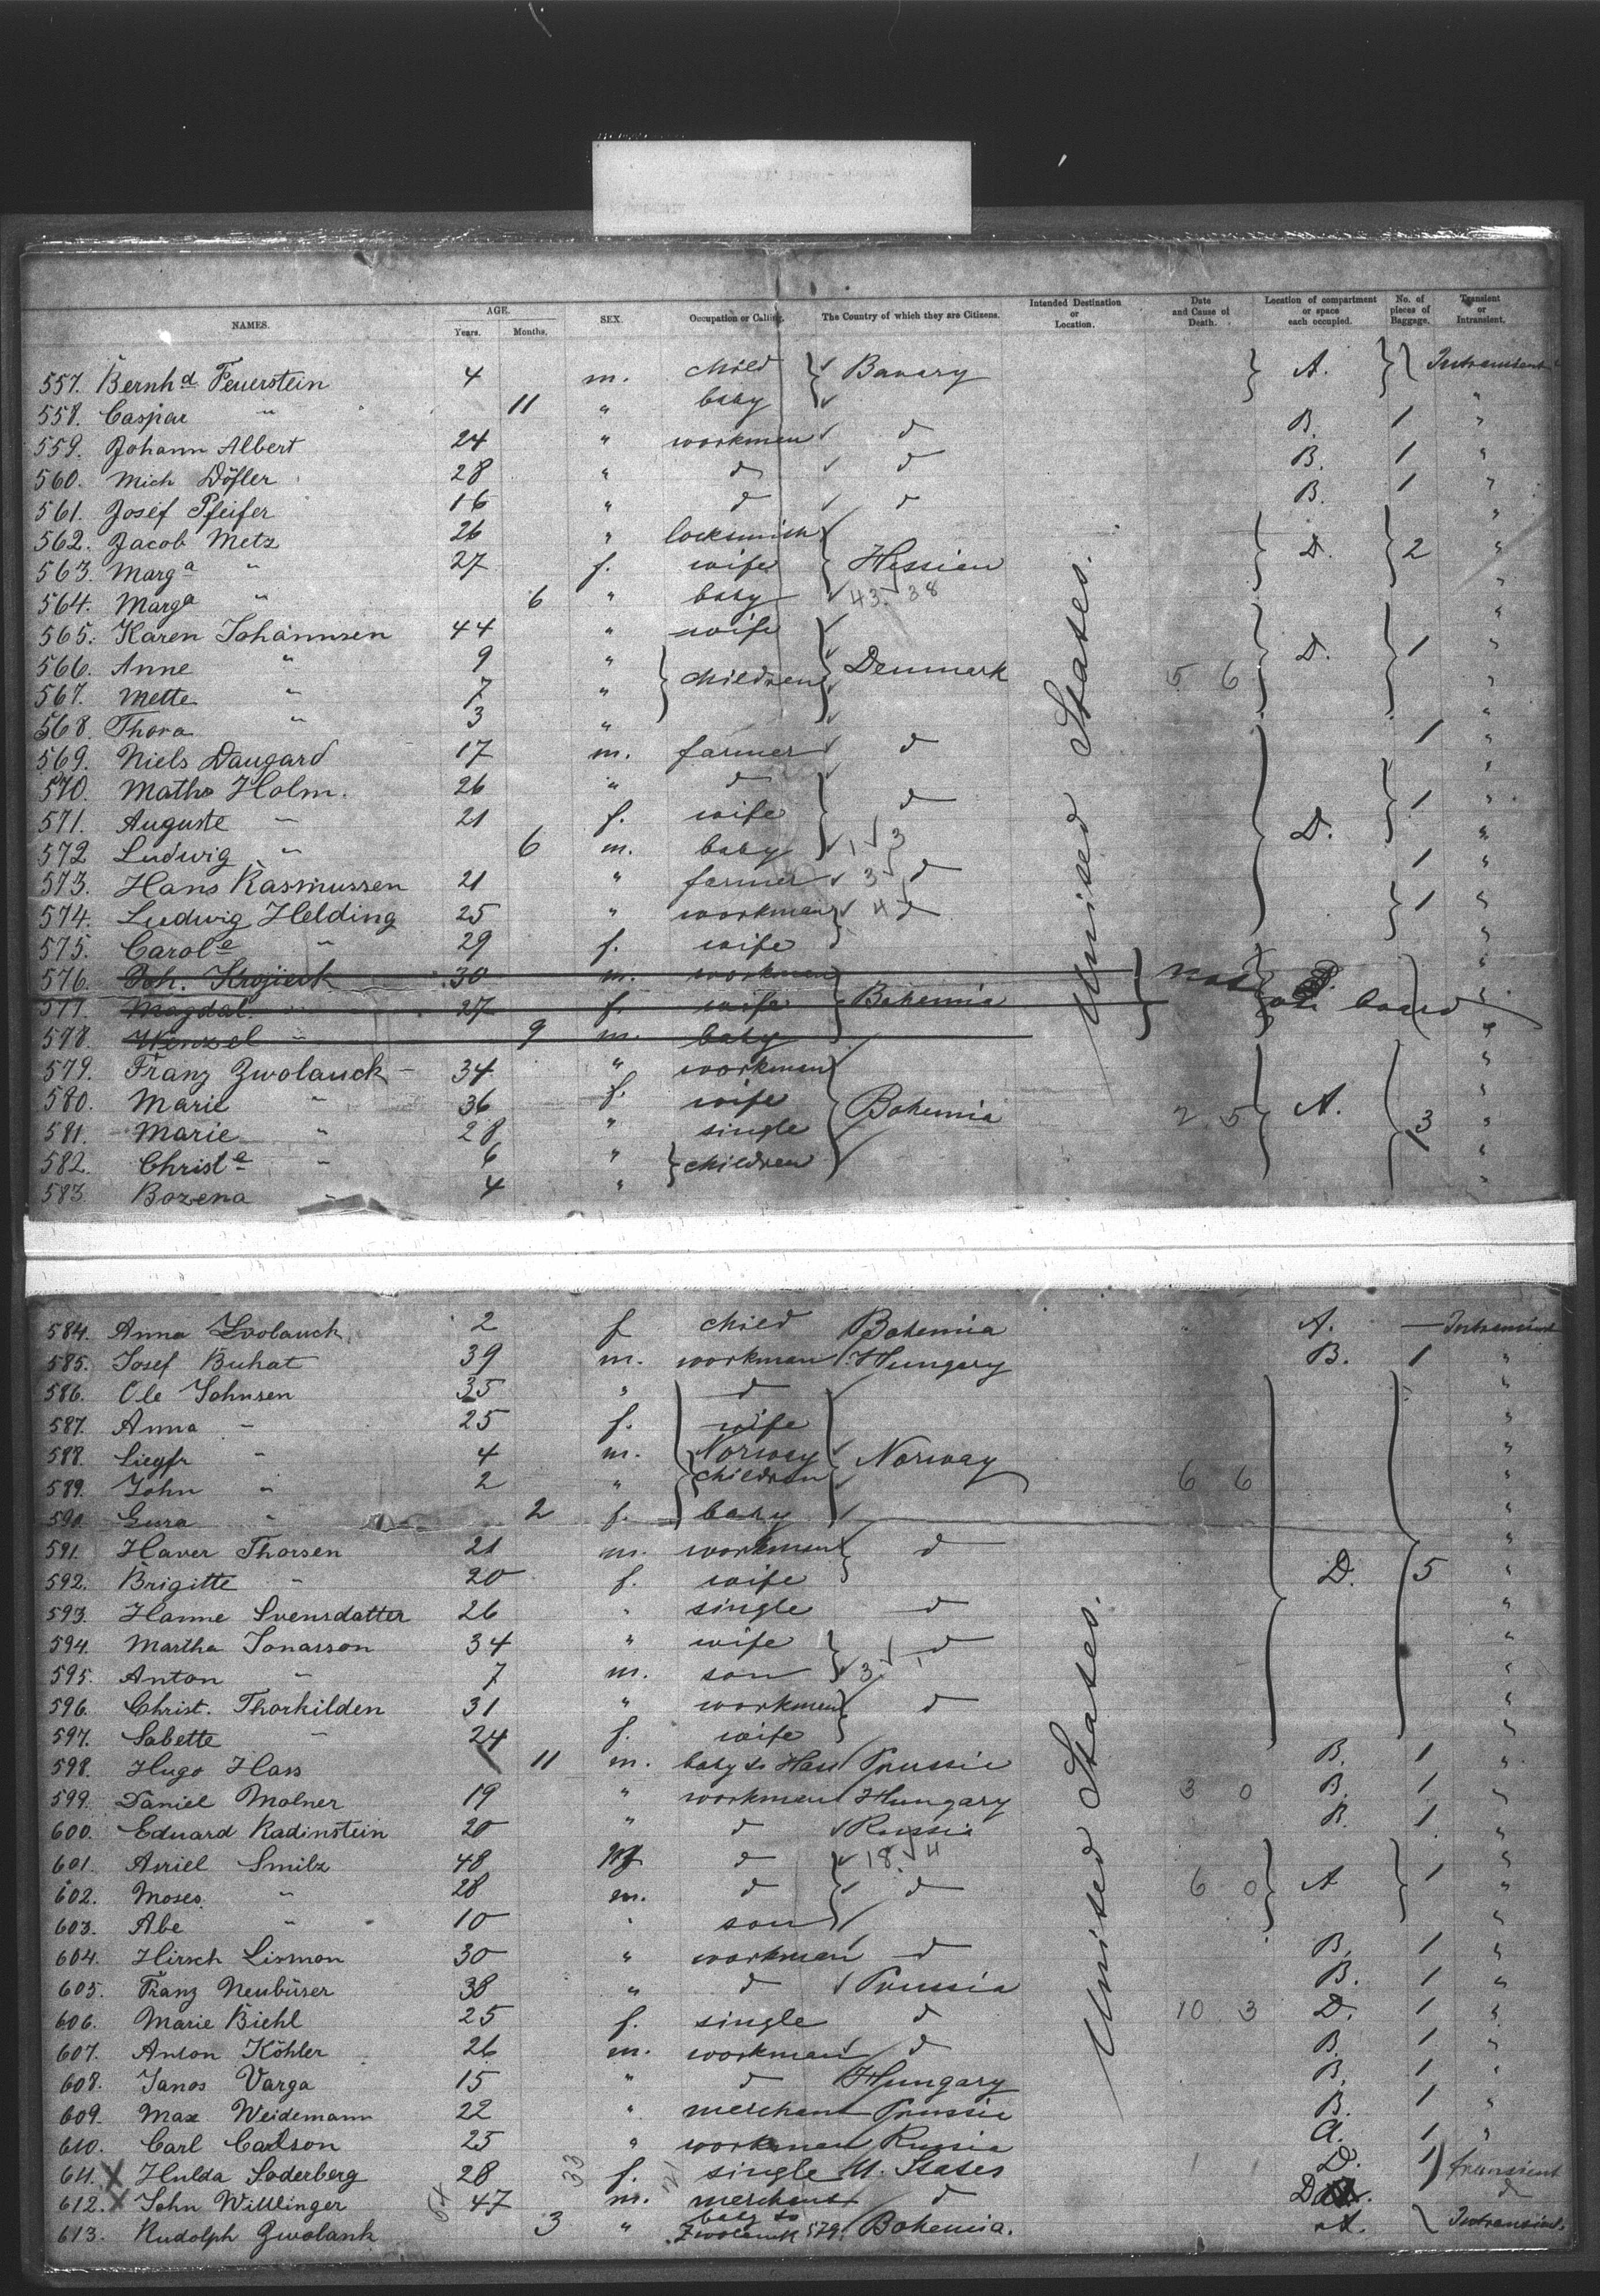 NAMES. AGE. Years. Months. SEX. Occupation or Calling. The Country of which they are Citizens. Intended Destination or Location. Date and Cause of Death. Location of compartment or space each occupied. No. of pieces of Baggage. Transient or Intransient.
557. Bernhd Feuerstein 4 m. child Bavary A. Intransient
558. Caspar " 11 " baby "
559. Johann Albert 24 " workman d B. 1 "
560. Mich Döfler 28 " d d B. 1 "
561. Josef Pfeifer 16 " d d B. 1 "
562. Jacob Metz 26 " locksmith "
563. Marga " 27 f. wife Hessien D. 2 "
564. Marga " 6 " baby 43. 38 "
565. Karen Johannsen 44 " wife "
566. Anne " 9 " children Denmark D. 1 "
567. Mette " 7 " 5 6 "
568. Thora " 3 " "
569. Niels Daugard 17 m. farmer d 1 "
570. Maths Holm. 26 " d "
571. Auguste " 21 f. wife d 1 "
572 Ludwig " 6 m. baby 1 3 D. "
573. Hans Rasmussen 21 " farmer 3 d 1 "
574. Ludwig Helding 25 " workman 4 d 1 "
575. Carole " 29 f. wife "
576. Joh. 30 m. workman not "
577. Magdal. " 27 f. wife Bohemia on board "
578. Wenzel " 9 m. baby "
579. Franz Zwolauck 34 " workman "
580. Marie " 36 f. wife Bohemia A. "
581. Marie " 28 " single 2 5 3 "
582. Christe " 6 " children "
583. Bozena " 4 " "
United States.
584. Anna Zwolauck 2 f child Bohemia A. — Intransient
585. Josef Buhat 39 m. workman Hungary B. 1 "
586. Ole Johnsen 35 " d "
587. Anna " 25 f. wife "
588. Siegfr " 4 m. Norway Norway "
589. John " 2 " children 6 6 "
590 Gura " 2 f. baby "
591. Haver Thorsen 21 m. workman d "
592. Brigitte " 20 f. wife D. 5 "
593. Hanne Svensdatter 26 " single d "
594. Martha Jonasson 34 " wife d "
595. Anton " 7 m. son 3. 1 "
596. Christ. Thorkilden 31 " workman d "
597. Sabette " 24 f. wife "
598. Hugo Hass 11 m. baby to Hass Prussia B. 1 "
599. Daniel Molner 19 " workman Hungary 3 0 B. 1 "
600. Eduard Radinstein 20 " d Russia B. 1 "
601. Asriel Smilz 48 m d 18. 4 "
602. Moses " 28 m. d d 6 0 A 1 "
603. Abe " 10 " son "
604. Hirsch Lisman 30 " workman d B. 1 "
605. Franz Neubüser 38 " d Prussia B. 1 "
606. Marie Biehl 25 f. single d 10 3 D. 1 "
607. Anton Köhler 26 m. workman d B. 1 "
608. Janos Varga 15 " d Hungary B. 1 "
609. Max Weidemann 22 " merchant Prussia B. 1 "
610. Carl Carlson 25 " workman Russia A. 1 "
611. X Hulda Soderberg 28 33 f. 21 single U. States 1 1 D. 1 transient
612. X John Willinger 47 m. merchant d D. d
613. Rudolph Zwolank 3 " baby to Zwolanck 579. Bohemia. A. Intransient.
United States.